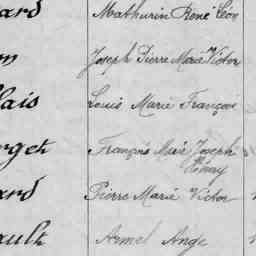 ard Mathurin René Léon
m Joseph Pierre Marie Victor
lais Louis Marie François
rget François Marie Joseph
Rémy
ard Pierre Marie Victor
ault Armel Ange